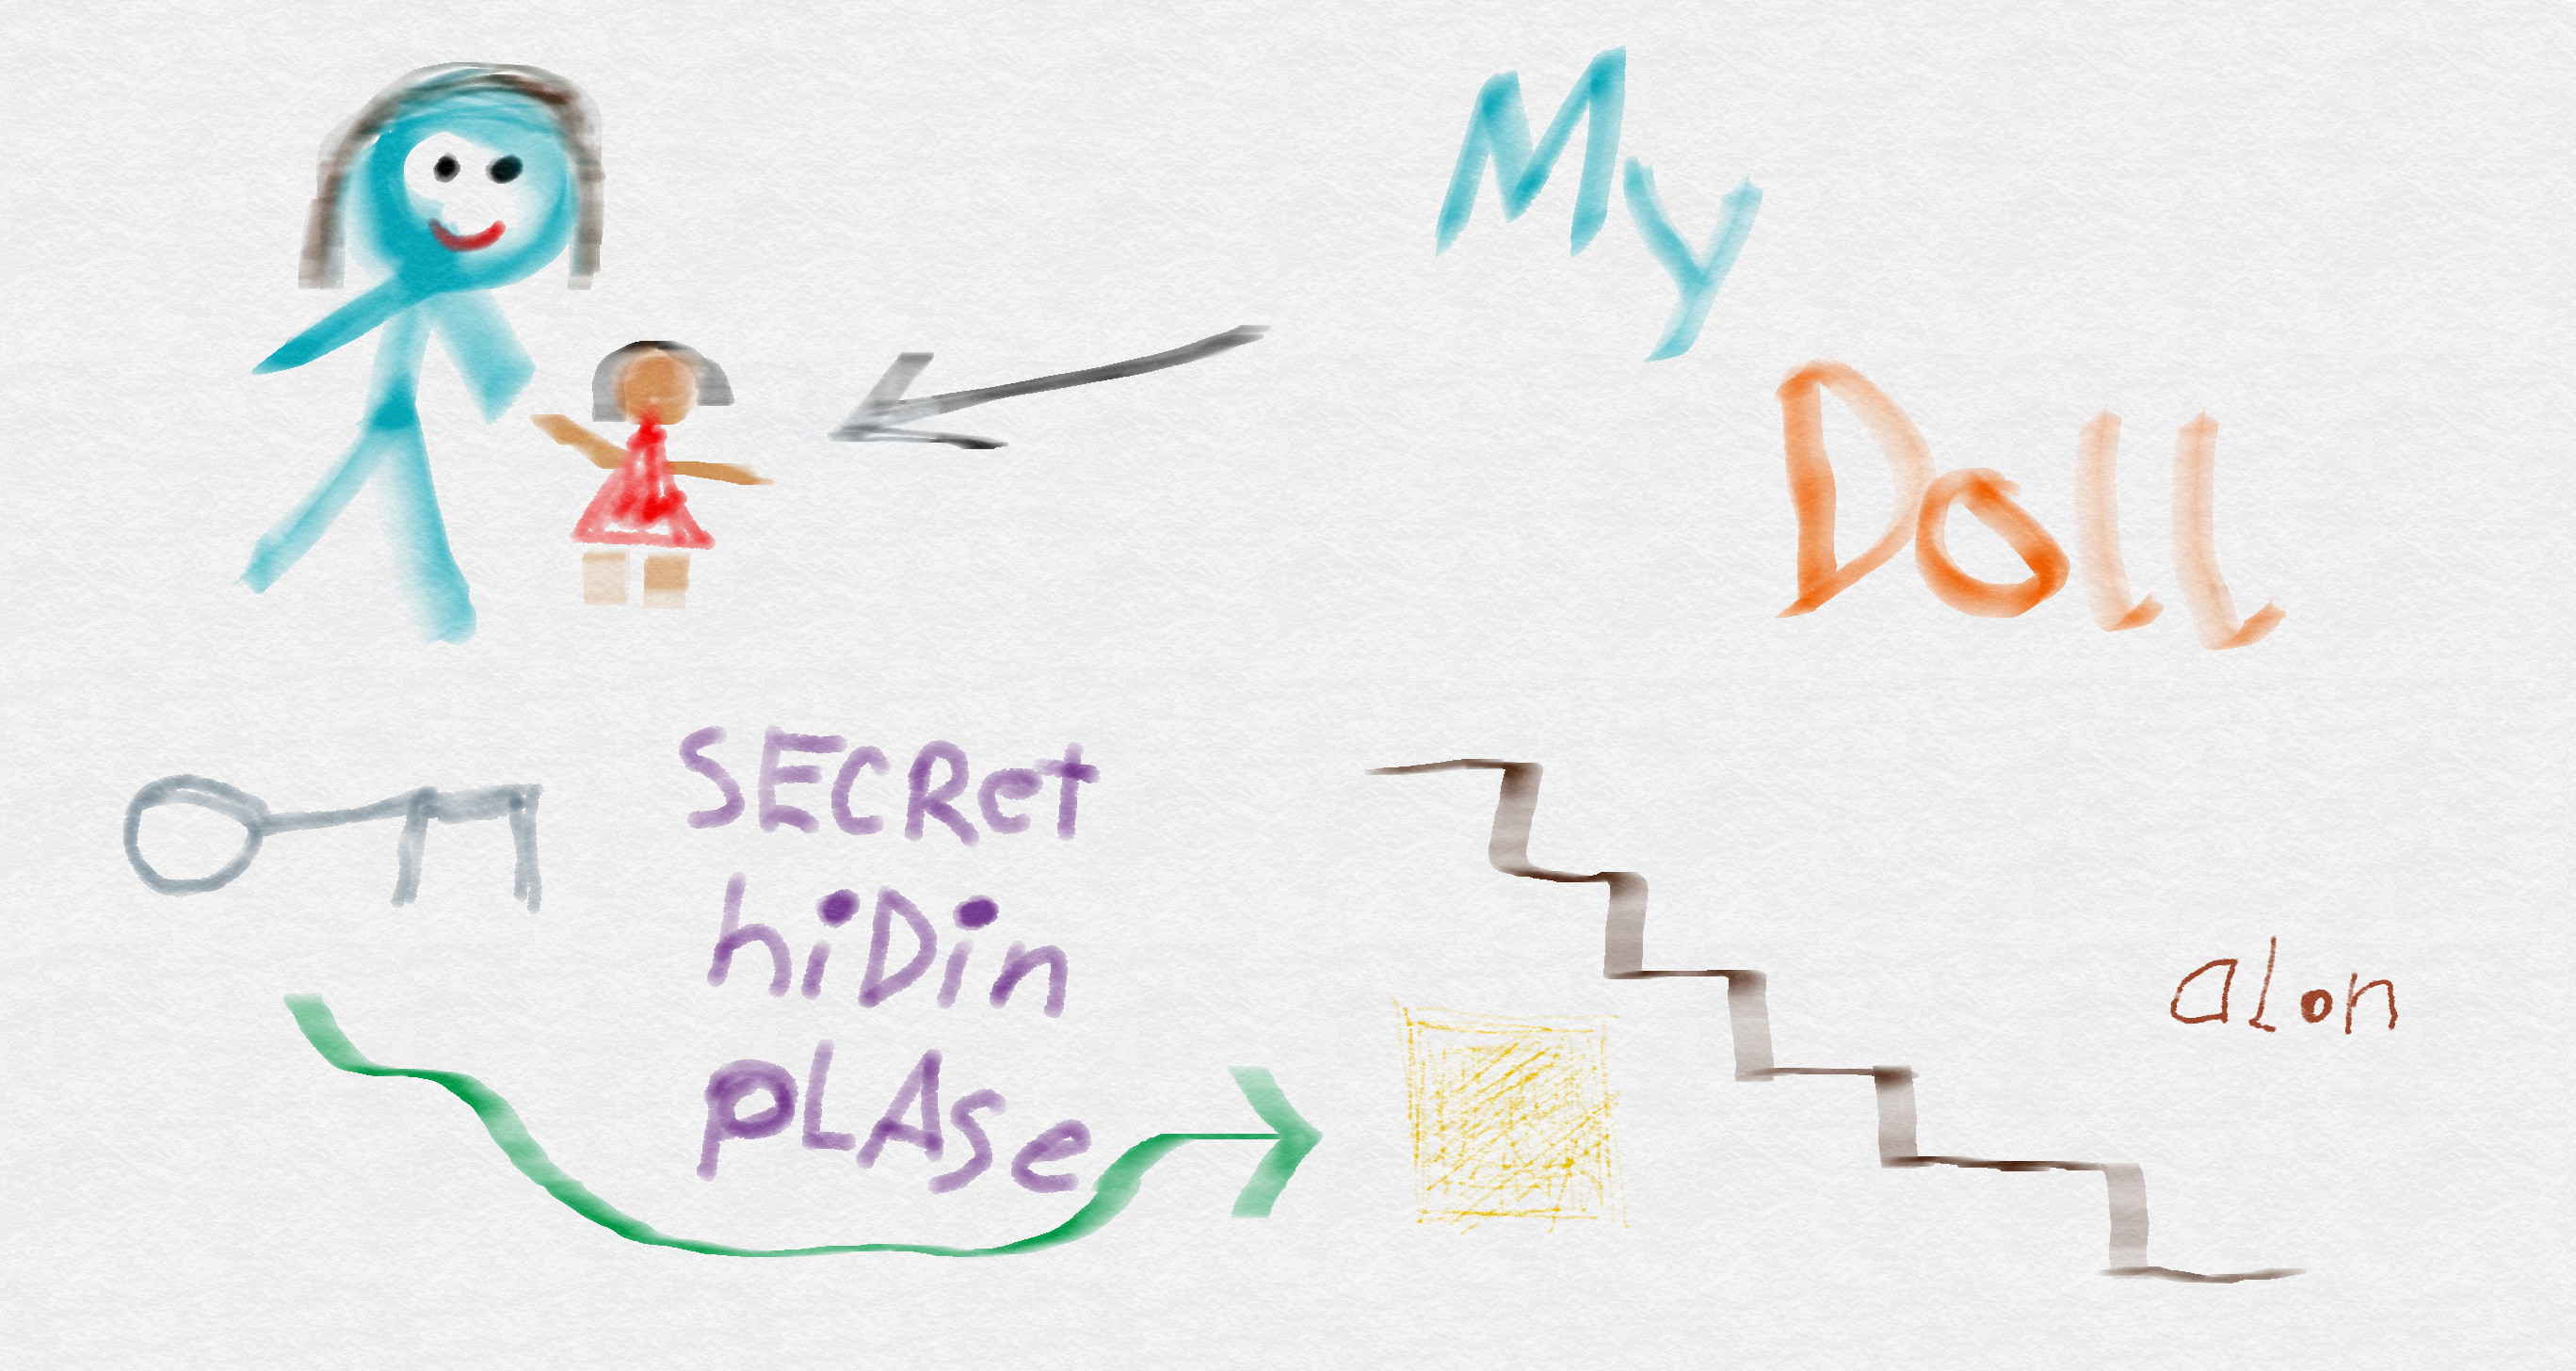 My
Doll
SECRet
hiDin
pLASe
aLon